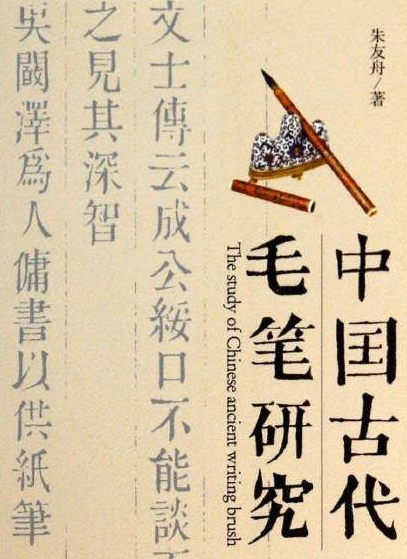 朱友舟/著
中国古代
毛笔研究
The study of Chinese ancient writing brush
文士傳云成公綏口不能談
之見其深智
吳闞澤爲人傭書以供紙筆